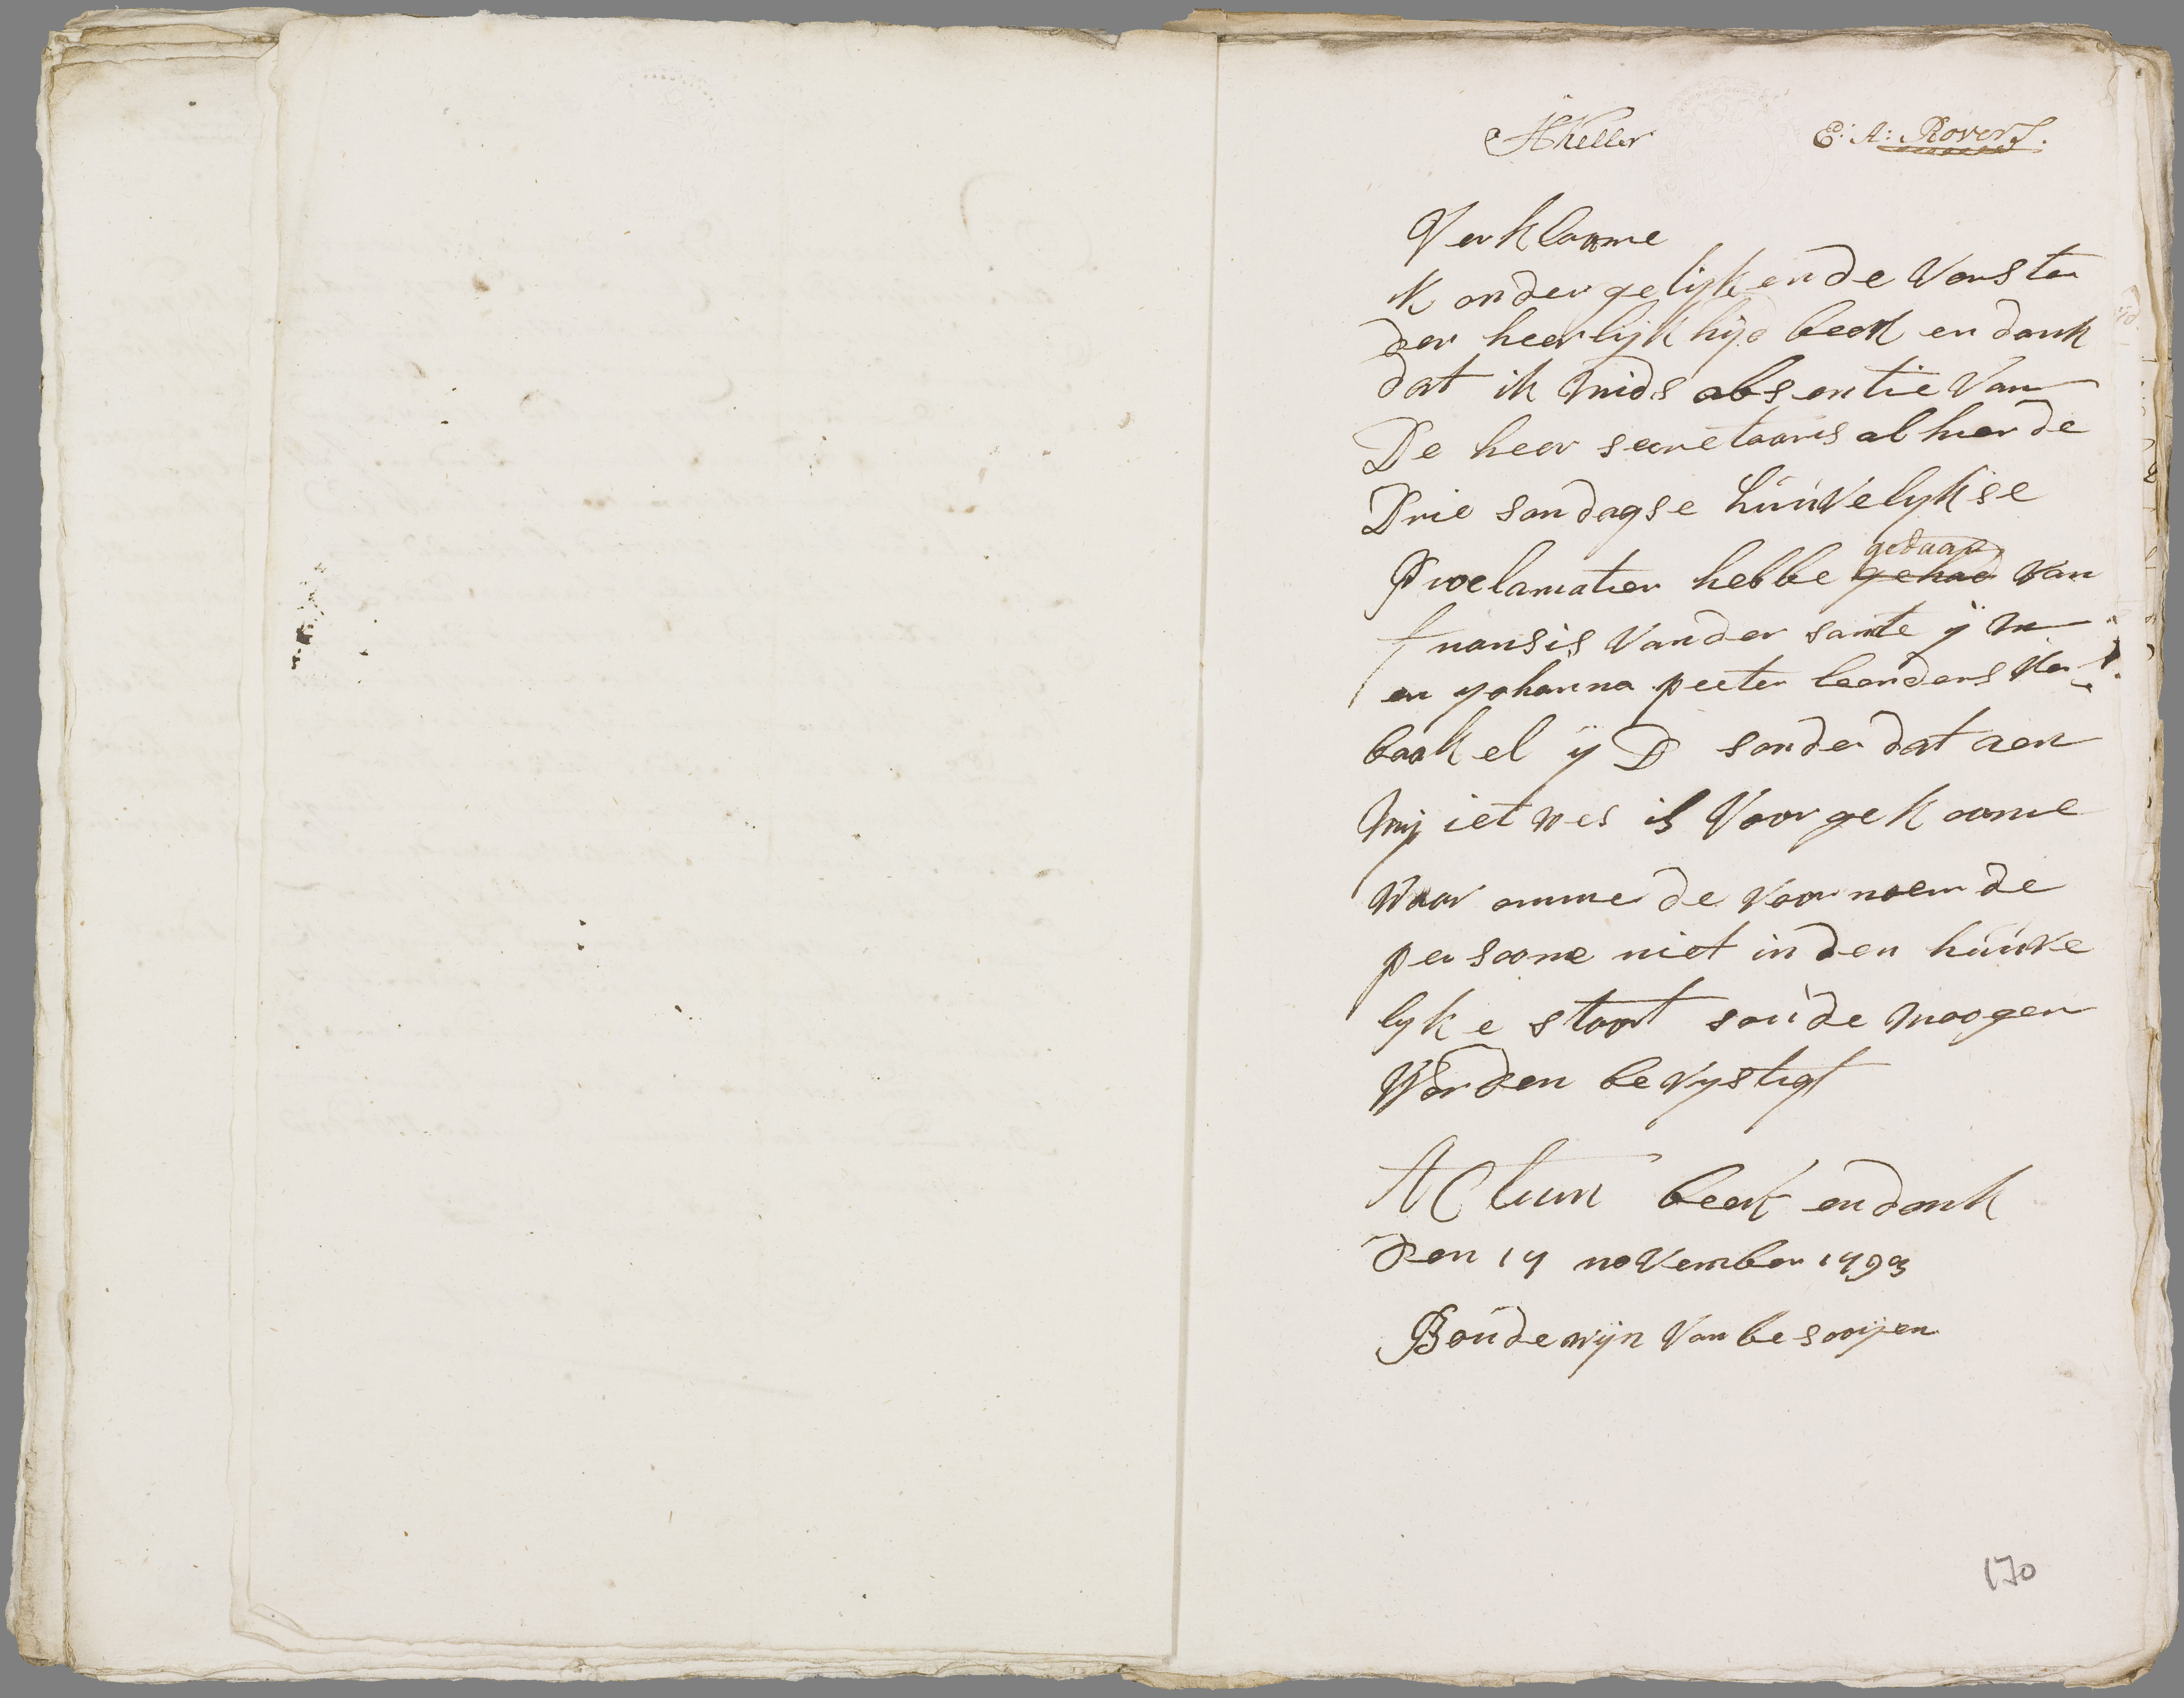 HKeller E: A: Rovers.
Verklaame
ik ondergelijkende Vorster
der heerlijkhijd beek en donk
dat ik mids absentie Van
De heer secretaaris alhier de
Drie sondagse húúwelykse
Proclamatien hebbe gehad gedaan van
fransis Vander sante ÿ m
en yohanna peeter leenders Ver
baakel ÿ D sonder dat aen
mij iet wes is Voor gekoome
Waar omme de voornoemde
persoone niet in den húúwe
lyke staat soúde moogen
Worden bevystigt
ACtum beek en donk
Den 17 november 1793
Boúdewijn Van besooijen
170